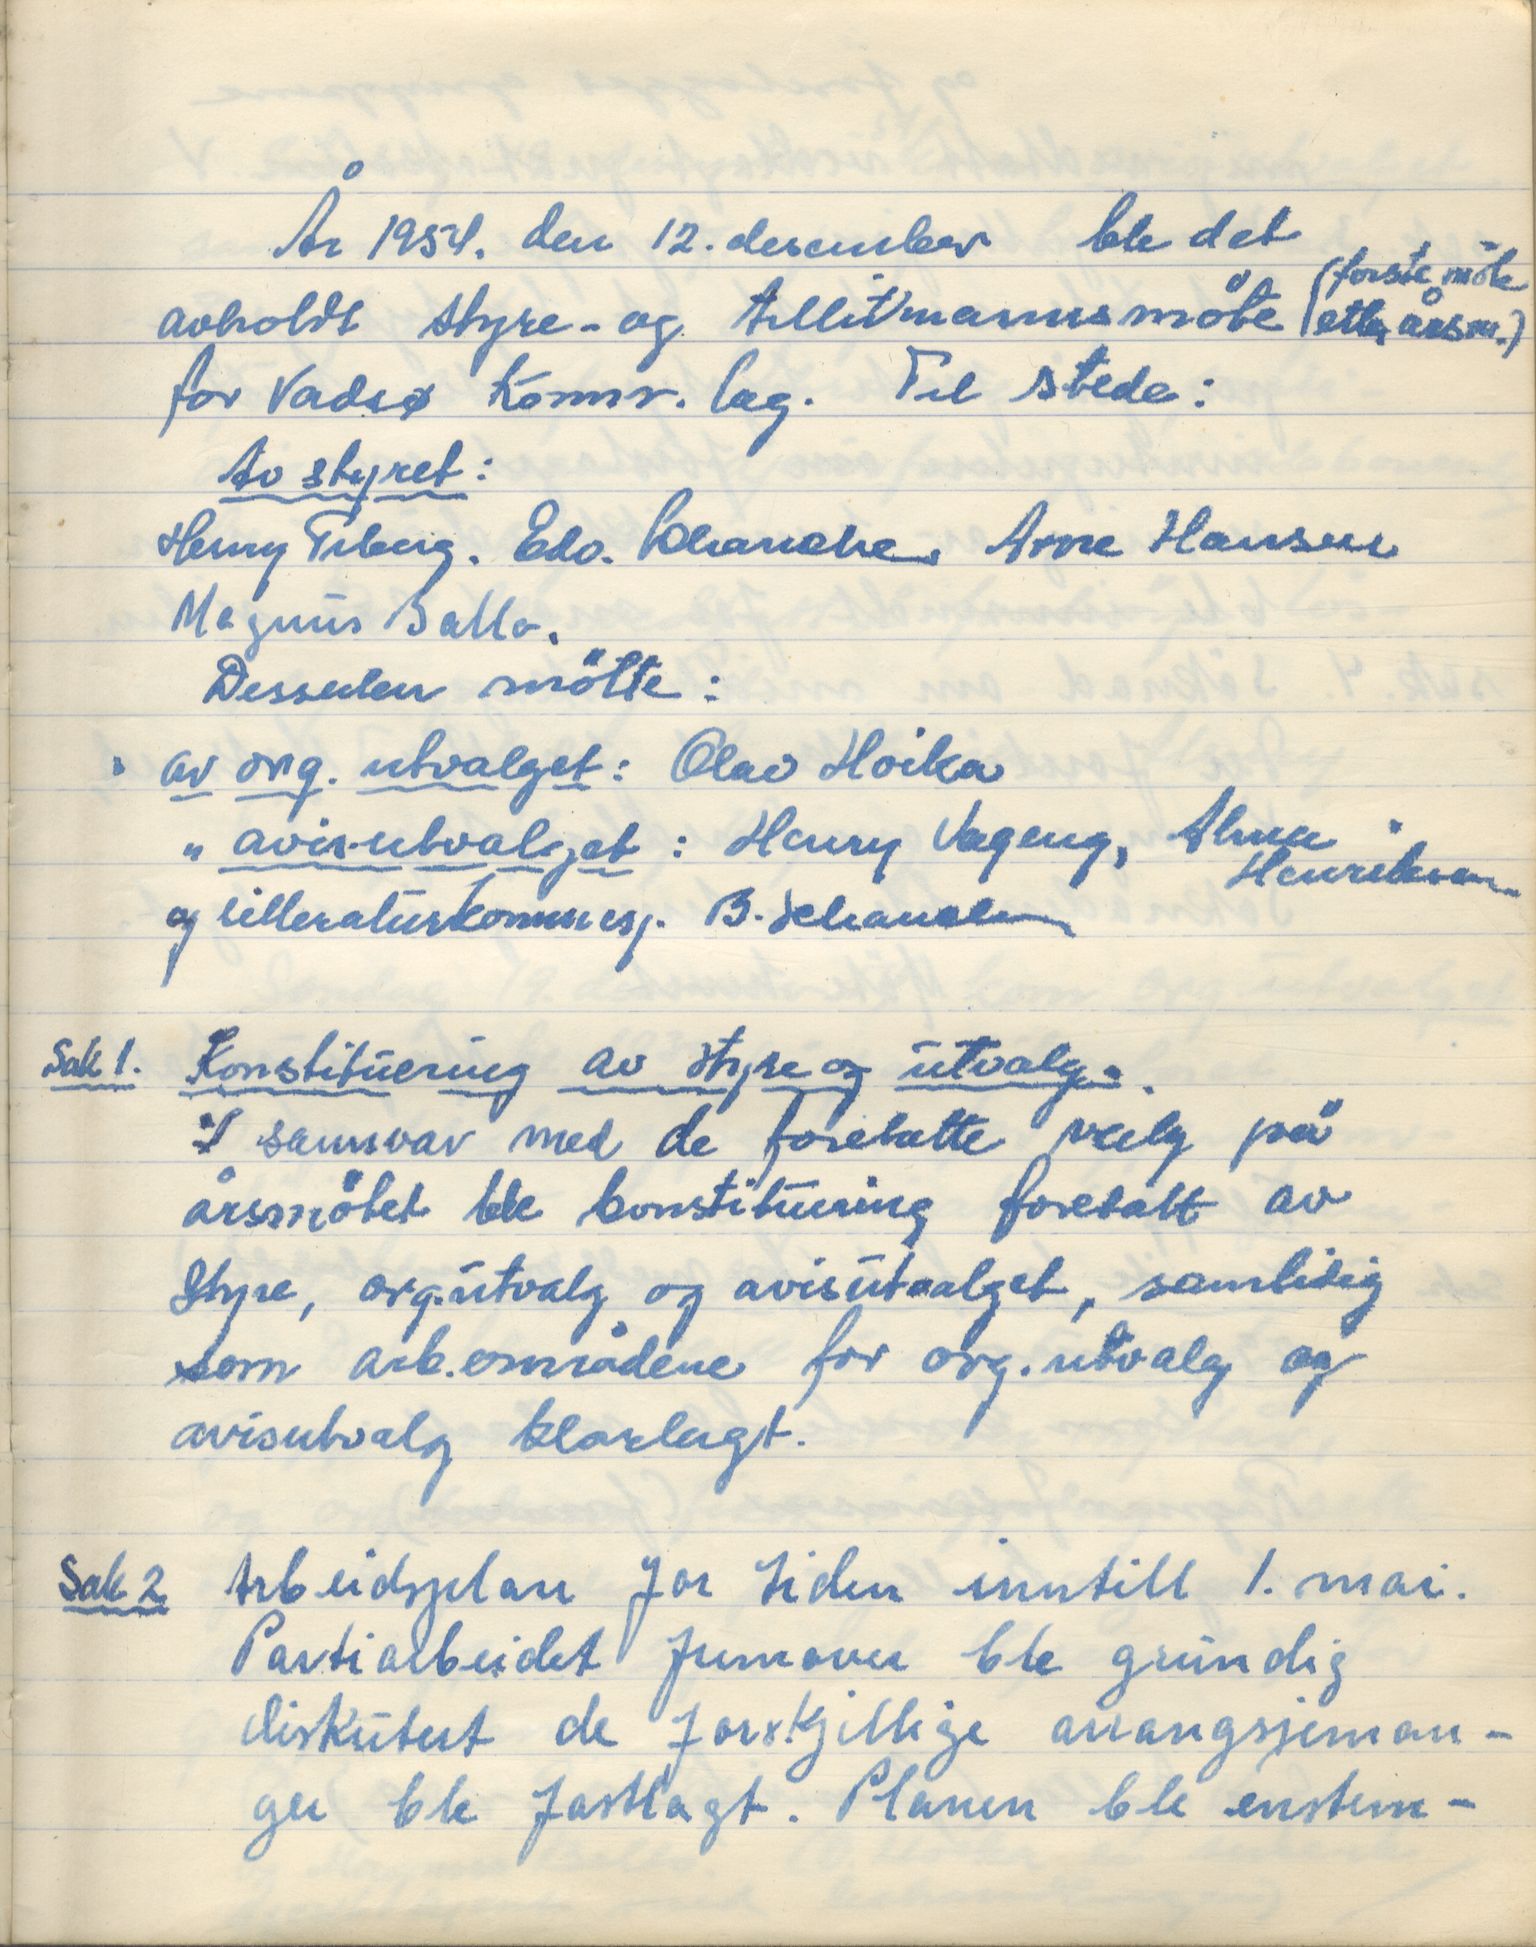 År 1954. den 12. desember ble det
avholdt styre- og tillitsmannsmöte (første möte
etter årsm.)
for Vadsø Komm. lag. Til stede:
Av styret:
Henry Friberg. Edv. Schanche. Arne Hansen
Magnus Balto.
Dessuten mötte:
av org. utvalget: Olav Hoika
" avisutvalget: Henry Vageng, Alma
Henriksen
og litteraturkommisj. B. Schanche
Sak 1. Konstituering av styre og utvalg.
I samsvar med de foretatte valg på
årsmötet ble konstituering foretatt av
styre, org.utvalg og avisutvalget, samtidig
som arb.områdene for org. utvalg og
avisutvalg klarlagt.
Sak 2 Arbeidsplan for tiden inntill 1. mai.
Partiarbeidet fremover ble grundig
diskutert de forskjellige arrangsjeman-
ger ble fastlagt. Planen ble enstem-